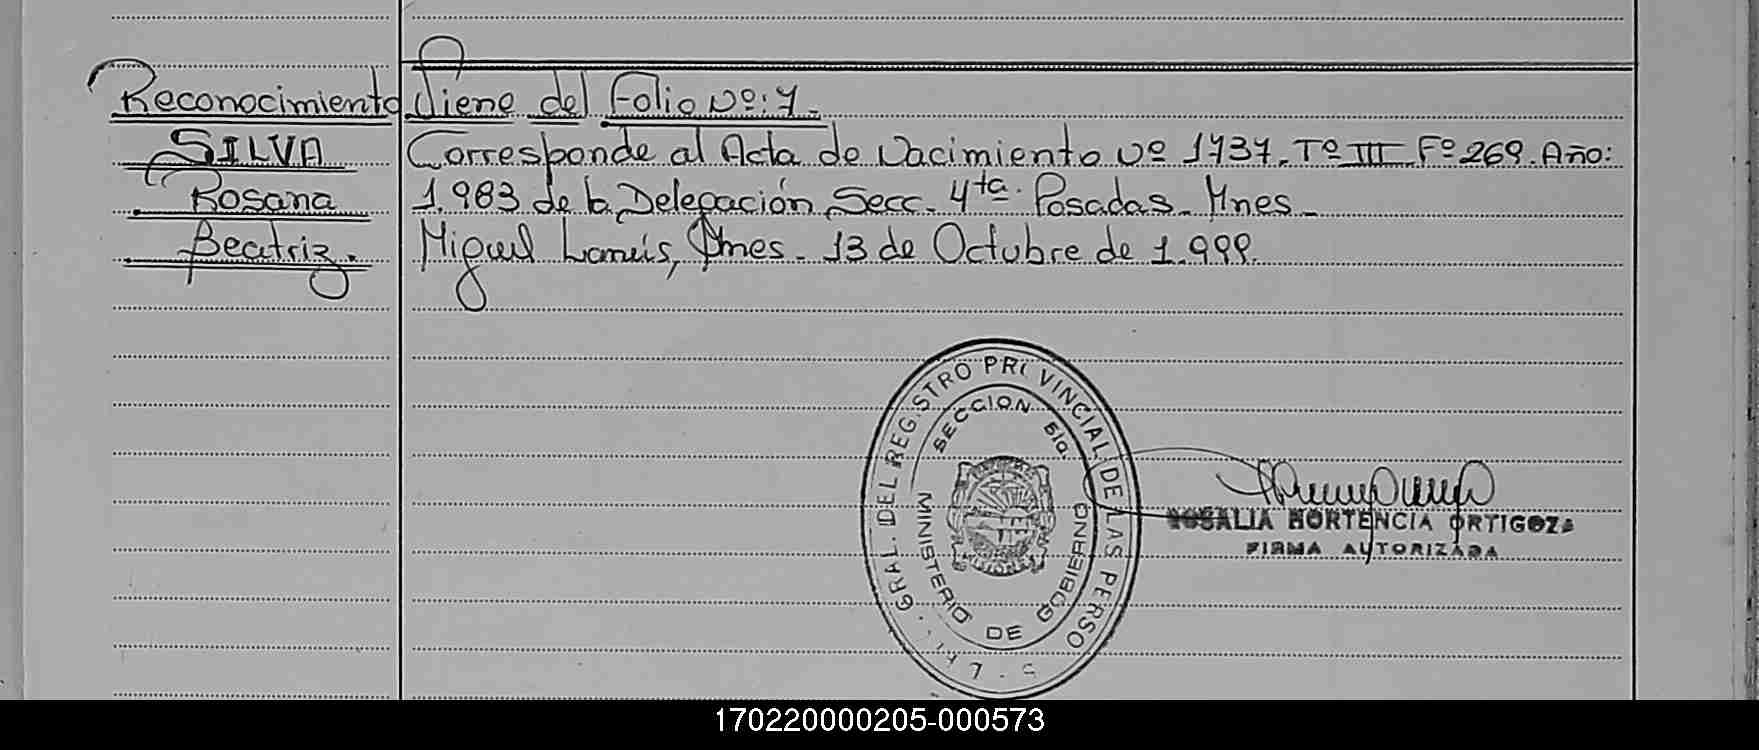 Reconocimiento
SILVA
Rosana
Beatriz.
Viene del Folio Nº: 7.
Corresponde al Acta de Nacimiento Nº 1737. Tº III Fº 269. Año:
1.983 de la Delegación Secc. 4ta. Posadas. Mnes.
Miguel Lanús, Mnes. 13 de Octubre de 1.999.
GRAL. DEL REG.STRO PROVINCIAL DE LAS PERSO
SECCION 510
MINISTERIO DE GOBIERNO
ROSALIA HORTENCIA ORTIGOZA
FIRMA AUTORIZADA
170220000205-000573